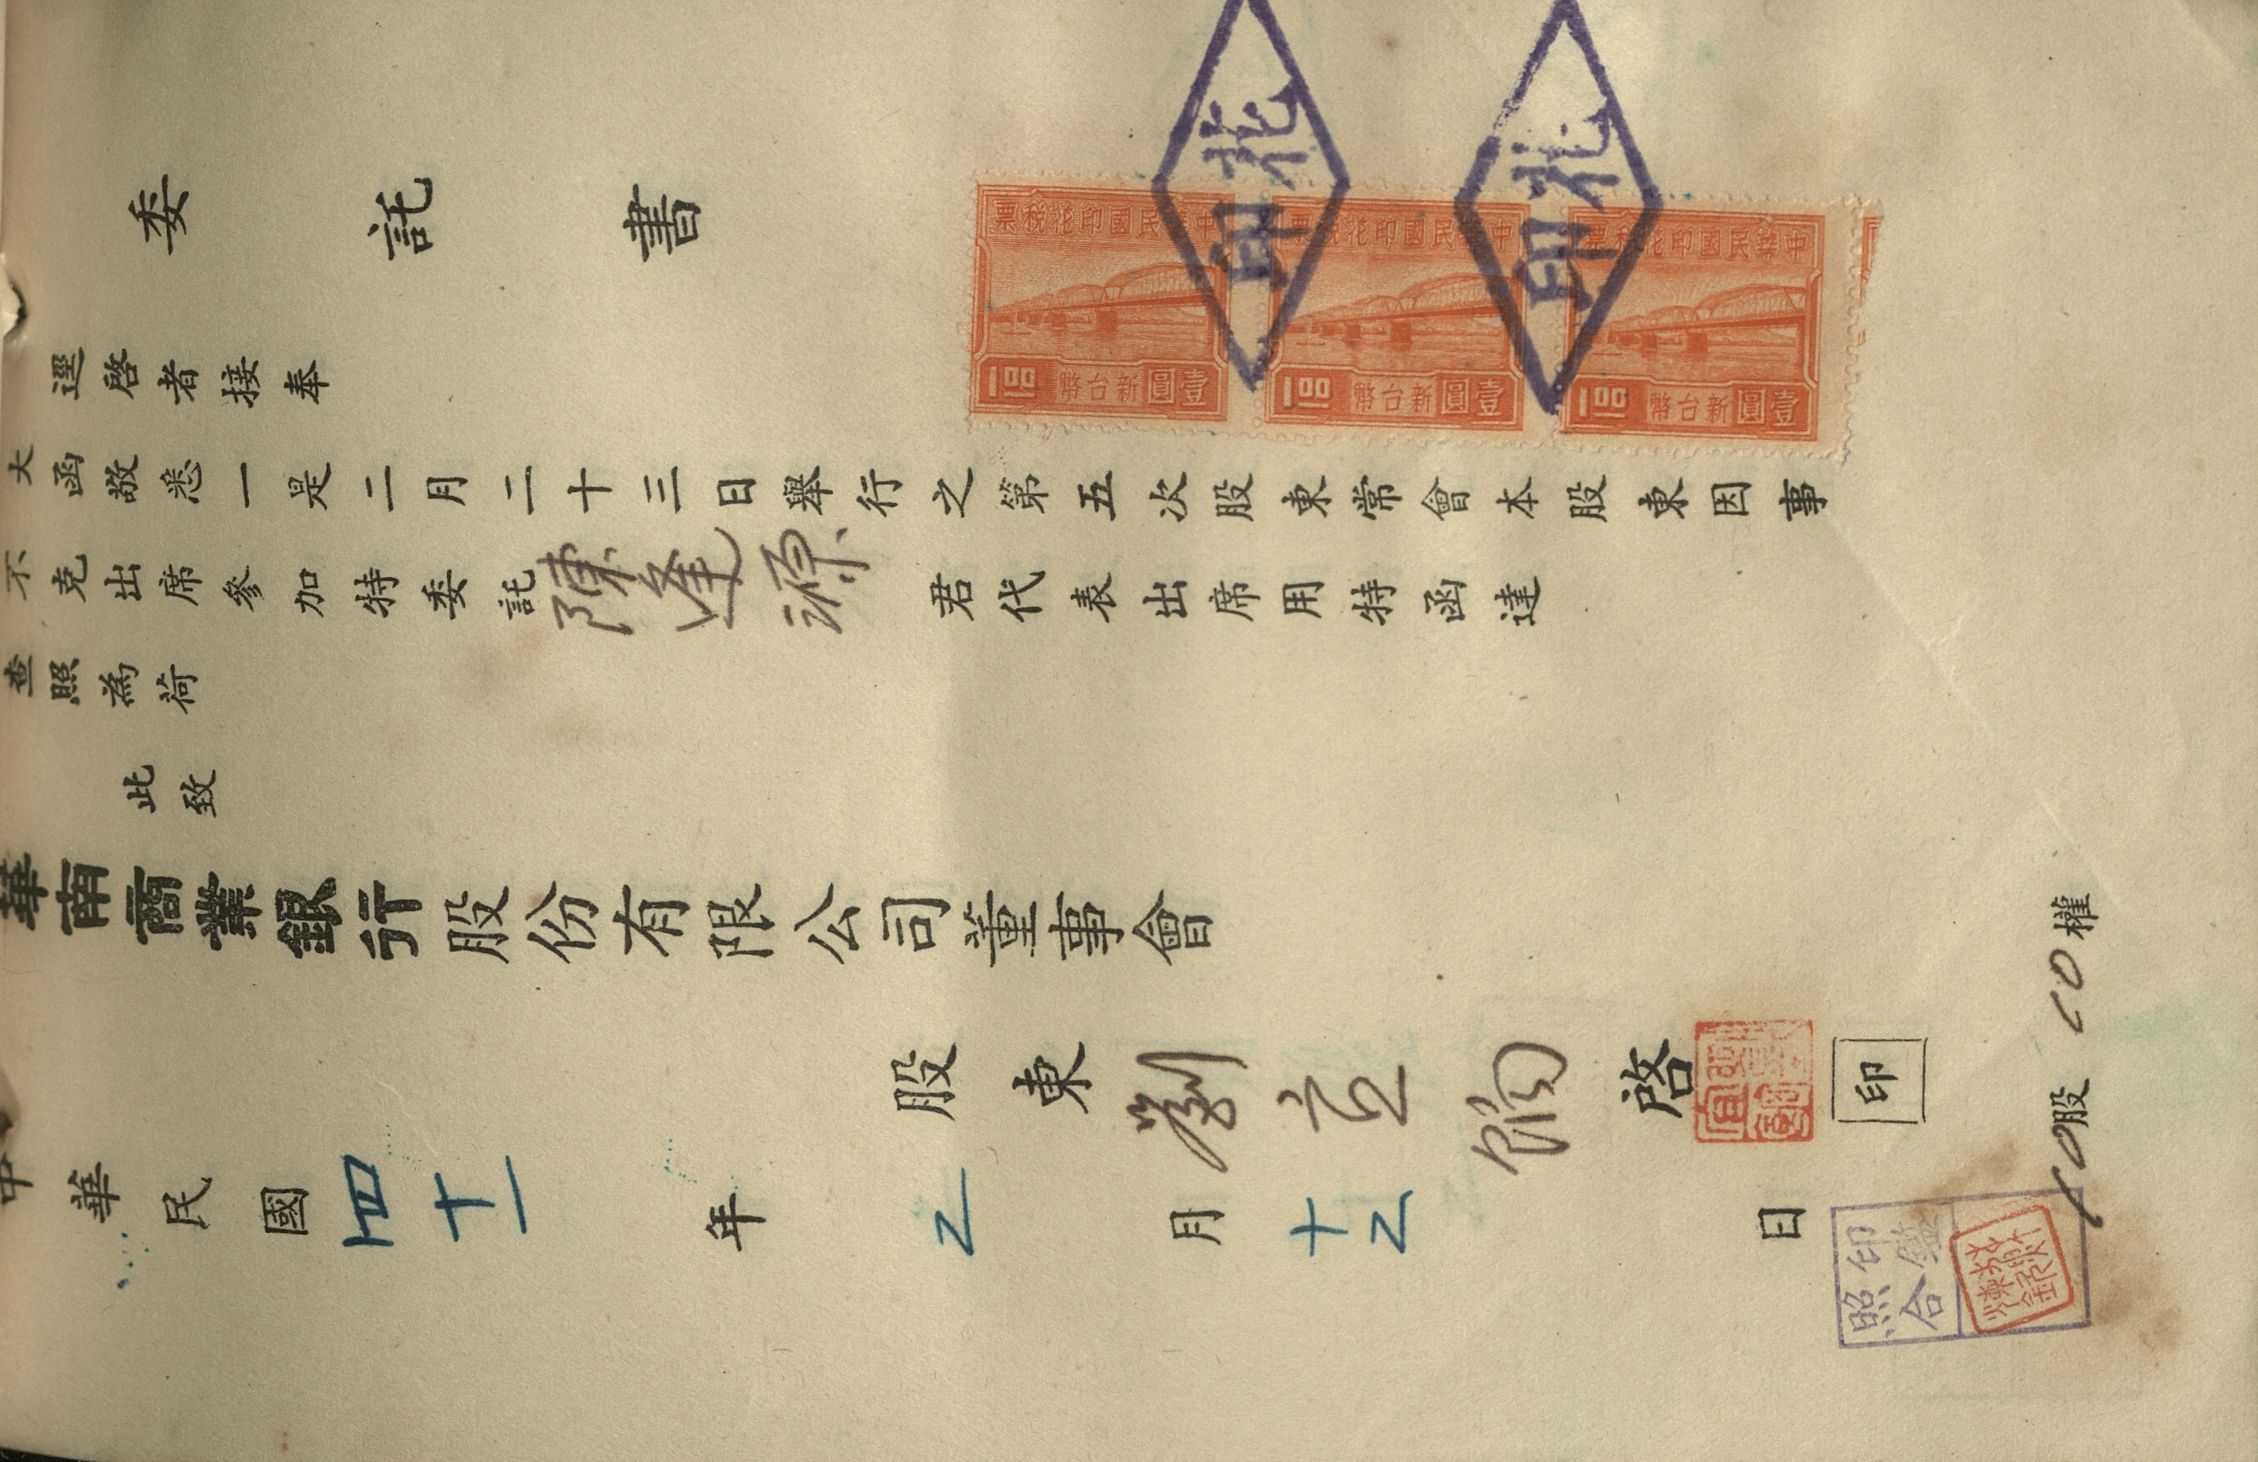 委託書
逕啓者接奉
大函敬悉一是二月二十三日舉行之第五次股東常會本股東因事
不克出席參加特委託陳逢源君代表出席用特函達
查照為荷
此致
華南商業銀行股份有限公司董事會
股東劉 啓
印
中華民國四十一年2月十2日
股 權
中華民國印花税票
壹圓 新台幣 1.00
中華民國印花税票
壹圓 新台幣 1.00
中華民國印花税票
壹圓 新台幣 1.00
印花
印花
印鑑
照合